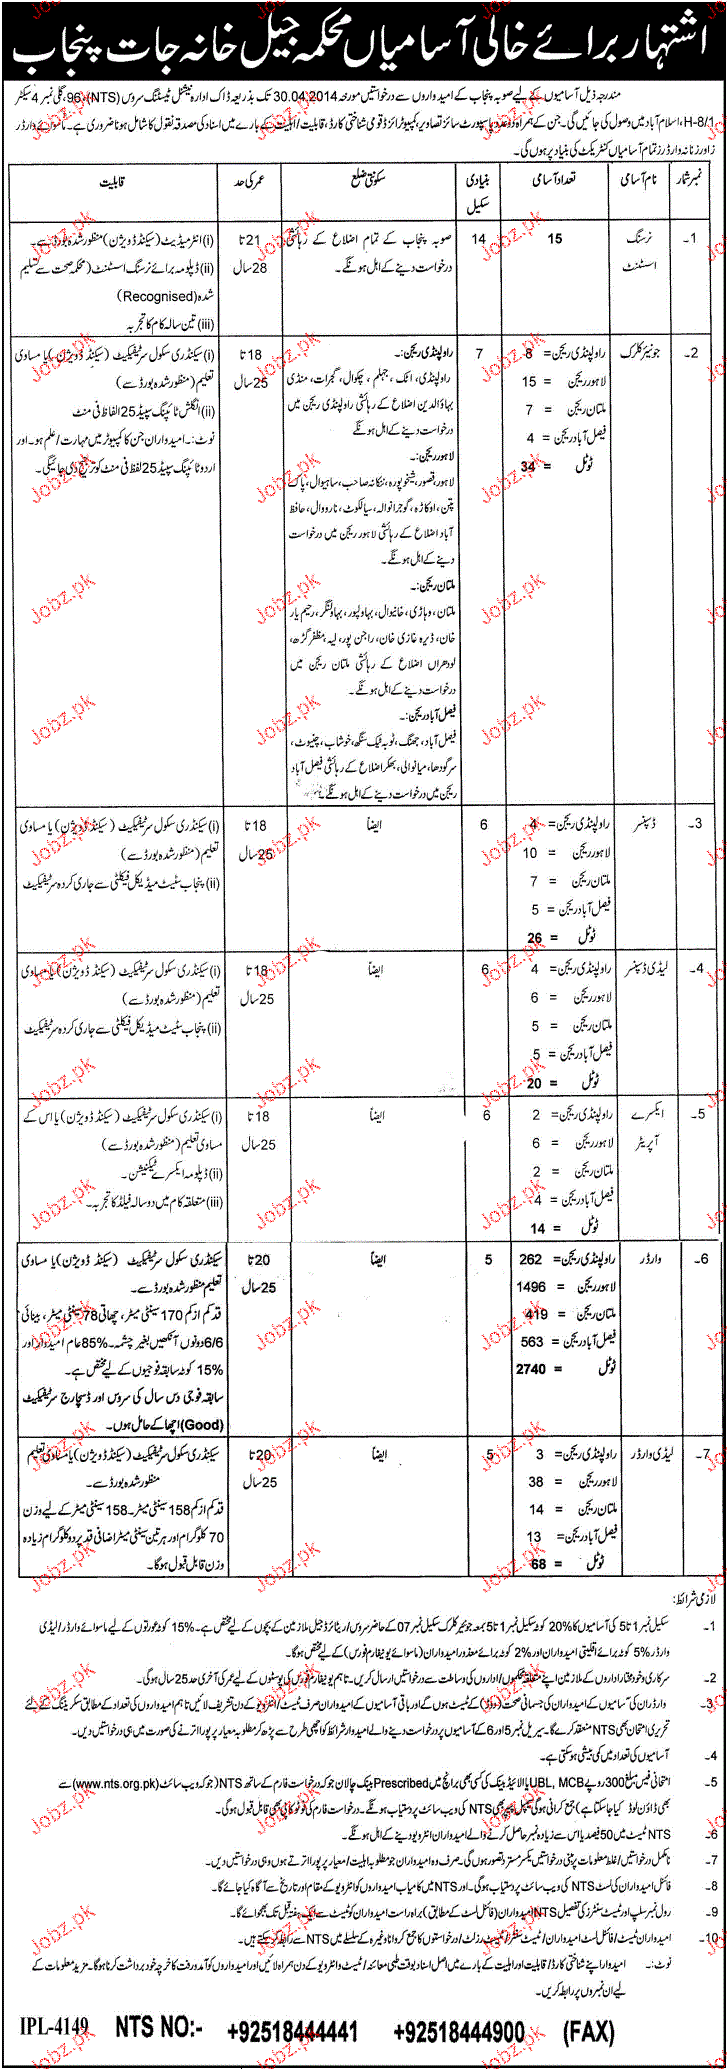 اشتہار برائے خالی آسامیاں محکمہ جیل خانہ جات پنجاب
مندرجہ ذیل آسامیوں کے لیے صوبہ پنجاب کے امیدواروں سے درخواستیں مورخہ 30.04.2014 تک بذریعہ ڈاک ادارہ نیشنل ٹیسٹنگ سروس (NTS)، 96، گلی نمبر 4 سیکٹر
H-8/1، اسلام آباد میں وصول کی جائیں گی۔ جن کے ہمراہ دو عدد پاسپورٹ سائز تصاویر، کمپیوٹرائزڈ قومی شناختی کارڈ، قابلیت / اہلیت کے بارے میں اسناد کی مصدقہ نقول کا شامل ہونا ضروری ہے۔ ماسوائے وارڈرز
اور زنانہ وارڈرز تمام آسامیاں کنٹریکٹ کی بنیاد پر ہوں گی۔
نمبر شمار نام آسامی تعداد آسامی بنیادی سکیل سکونتی ضلع عمر کی حد قابلیت
1۔ نرسنگ اسسٹنٹ 15 14
صوبہ پنجاب کے تمام اضلاع کے رہائشی
درخواست دینے کے اہل ہونگے۔
21 تا 28 سال
(i) انٹرمیڈیٹ (سیکنڈ ڈویژن) منظور شدہ بورڈ سے۔
(ii) ڈپلومہ برائے نرسنگ اسسٹنٹ (محکمہ صحت سے تسلیم
شدہ (Recognised)
(iii) تین سالہ کام کا تجربہ
2۔ جونیئر کلرک
راولپنڈی ریجن = 8
لاہور ریجن = 15
ملتان ریجن = 7
فیصل آباد ریجن = 4
ٹوٹل = 34
7
راولپنڈی ریجن:۔
راولپنڈی، اٹک، جہلم، چکوال، گجرات، منڈی
بہاؤالدین اضلاع کے رہائشی راولپنڈی ریجن میں
درخواست دینے کے اہل ہونگے
لاہور ریجن:۔
لاہور، قصور، شیخوپورہ، ننکانہ صاحب، ساہیوال، پاک
پتن، اوکاڑہ، گوجرانوالہ، سیالکوٹ، نارووال، حافظ
آباد اضلاع کے رہائشی لاہور ریجن میں درخواست
دینے کے اہل ہونگے۔
ملتان ریجن:۔
ملتان، وہاڑی، خانیوال، بہاولپور، بہاولنگر، رحیم یار
خان، ڈیرہ غازی خان، راجن پور، لیہ، مظفر گڑھ،
لودھراں اضلاع کے رہائشی ملتان ریجن میں
درخواست دینے کے اہل ہونگے۔
فیصل آباد ریجن:۔
فیصل آباد، جھنگ، ٹوبہ ٹیک سنگھ، خوشاب، چنیوٹ،
سرگودھا، میانوالی، بھکر اضلاع کے رہائشی فیصل آباد
ریجن میں درخواست دینے کے اہل ہونگے۔
18 تا 25 سال
(i) سیکنڈری سکول سرٹیفکیٹ (سیکنڈ ڈویژن) یا مساوی
تعلیم (منظور شدہ بورڈ سے)
(ii) انگلش ٹائپنگ سپیڈ 25 الفاظ فی منٹ
نوٹ:۔ امیدواران جن کا کمپیوٹر میں مہارت / علم ہو۔ اور
اردو ٹائپنگ سپیڈ 25 لفظ فی منٹ کو ترجیح دی جائیگی۔
3۔ ڈسپنسر
راولپنڈی ریجن = 4
لاہور ریجن = 10
ملتان ریجن = 7
فیصل آباد ریجن = 5
ٹوٹل = 26
6 ایضاً 18 تا 25 سال
(i) سیکنڈری سکول سرٹیفکیٹ (سیکنڈ ڈویژن) یا مساوی
تعلیم (منظور شدہ بورڈ سے)
(ii) پنجاب سٹیٹ میڈیکل فیکلٹی سے جاری کردہ سرٹیفکیٹ
4۔ لیڈی ڈسپنسر
راولپنڈی ریجن = 4
لاہور ریجن = 6
ملتان ریجن = 5
فیصل آباد ریجن = 5
ٹوٹل = 20
6 ایضاً 18 تا 25 سال
(i) سیکنڈری سکول سرٹیفکیٹ (سیکنڈ ڈویژن) یا مساوی
تعلیم (منظور شدہ بورڈ سے)
(ii) پنجاب سٹیٹ میڈیکل فیکلٹی سے جاری کردہ سرٹیفکیٹ
5۔ ایکسرے آپریٹر
راولپنڈی ریجن = 2
لاہور ریجن = 6
ملتان ریجن = 2
فیصل آباد ریجن = 4
ٹوٹل = 14
6 ایضاً 18 تا 25 سال
(i) سیکنڈری سکول سرٹیفکیٹ (سیکنڈ ڈویژن) یا اس کے
مساوی تعلیم (منظور شدہ بورڈ سے)
(ii) ڈپلومہ ایکسرے ٹیکنیشن۔
(iii) متعلقہ کام میں دو سالہ فیلڈ کا تجربہ۔
6۔ وارڈر
راولپنڈی ریجن = 262
لاہور ریجن = 1496
ملتان ریجن = 419
فیصل آباد ریجن = 563
ٹوٹل = 2740
5 ایضاً 20 تا 25 سال
سیکنڈری سکول سرٹیفکیٹ (سیکنڈ ڈویژن) یا مساوی
تعلیم منظور شدہ بورڈ سے۔
قد کم از کم 170 سینٹی میٹر، چھاتی 78 سینٹی میٹر، بینائی
6/6 دونوں آنکھیں بغیر چشمہ۔ 85% عام امیدوار اور
15% کوٹہ سابقہ فوجیوں کے لیے مختص ہے۔
سابقہ فوجی دس سال کی سروس اور ڈسچارج سرٹیفکیٹ
(Good) اچھا کے حامل ہوں۔
7۔ لیڈی وارڈر
راولپنڈی ریجن = 3
لاہور ریجن = 38
ملتان ریجن = 14
فیصل آباد ریجن = 13
ٹوٹل = 68
5 ایضاً 20 تا 25 سال
سیکنڈری سکول سرٹیفکیٹ (سیکنڈ ڈویژن) یا مساوی تعلیم
منظور شدہ بورڈ سے۔
قد کم از کم 158 سینٹی میٹر۔ 158 سینٹی میٹر کے لیے وزن
70 کلوگرام اور ہر تین سینٹی میٹر اضافی قد پر دو کلوگرام زیادہ
وزن قابل قبول ہوگا۔
لازمی شرائط:۔
1۔ سکیل نمبر 1 تا 5 کی آسامیوں کا 20% کوٹہ سکیل نمبر 1 تا 5 بمعہ جونیئر کلرک سکیل نمبر 07 کے حاضر سروس / ریٹائرڈ جیل ملازمین کے بچوں کے لیے مختص ہے۔ 15% کوٹہ عورتوں کے لیے ماسوائے وارڈر / لیڈی
وارڈر 5% کوٹہ برائے اقلیتی امیدواران اور 2% کوٹہ برائے معذور امیدواران (ماسوائے یونیفارم فورس) کے لیے مختص ہوگا۔
2۔ سرکاری و خود مختار اداروں کے ملازمین اپنے متعلقہ محکموں / اداروں کی وساطت سے درخواستیں ارسال کریں۔ تاہم یونیفارم فورس کی پوسٹوں کے لیے عمر کی آخری حد 25 سال ہوگی۔
3۔ وارڈران کی آسامیوں کے امیدواران کی جسمانی صحت (دوڑ) کے ٹیسٹ ہوں گے اور باقی آسامیوں کے امیدواران صرف ٹیسٹ / انٹرویو کے دن تشریف لائیں تاہم امیدواروں کی تعداد کے مطابق سکریننگ کے لئے
تحریری امتحان بھی NTS منعقد کرے گا۔ سیریل نمبر 5 اور 6 کے آسامیوں پر درخواست دینے والے امیدوار شرائط کو اچھی طرح سے پڑھ کر مطلوبہ معیار پر پورا اترنے کی صورت میں ہی درخواستیں دیں۔
4۔ آسامیوں کی تعداد میں کمی بیشی ہوسکتی ہے۔
5۔ امتحانی فیس مبلغ 300 روپے UBL, MCB یا الائیڈ بینک کی کسی بھی برانچ میں Prescribed بینک چالان جو کہ درخواست فارم کے ساتھ NTS (جو کہ ویب سائٹ (www.nts.org.pk) سے
بھی ڈاؤن لوڈ کیا جاسکتا ہے) جمع کرانی ہوگی سیمپل پیپر بھی NTS کی ویب سائٹ پر دستیاب ہونگے۔ درخواست فارم کی فوٹو کاپی بھی قابل قبول ہوگی۔
6۔ NTS ٹیسٹ میں 50 فیصد یا اس سے زیادہ نمبر حاصل کرنے والے امیدواران انٹرویو دینے کے اہل ہونگے۔
7۔ نامکمل درخواستیں / غلط معلومات پر مبنی درخواستیں یکسر مسترد تصور ہوں گی۔ صرف وہ امیدواران جو مطلوبہ اہلیت / معیار پر پورا اترتے ہوں وہی درخواستیں دیں۔
8۔ فائنل امیدواران کی لسٹ NTS کی ویب سائٹ پر دستیاب ہوگی۔ اور NTS میں کامیاب امیدواروں کو انٹرویو کے مقام اور تاریخ سے آگاہ کیا جائے گا۔
9۔ رول نمبر سلپ اور ٹیسٹ سنٹرز کی تفصیل NTS امیدواران (فائنل لسٹ کے مطابق) براہ راست امیدواران کو ٹیسٹ سے ایک ہفتہ قبل تک بھجوائے گا۔
10۔ امیدواران ٹیسٹ / فائنل لسٹ امیدواران / ٹیسٹ سنٹر / ٹیسٹ رزلٹ / درخواستوں کا جمع کروانا وغیرہ کے سلسلے میں NTS سے رابطہ کرسکتے ہیں۔
نوٹ:۔ امیدوار اپنے شناختی کارڈ / قابلیت اور اہلیت کے بارے میں اصل اسناد بوقت طبی معائنہ / ٹیسٹ و انٹرویو کے دن ہمراہ لائیں اور امیدواروں کو آمدورفت کا خرچہ خود برداشت کرنا ہوگا۔ مزید معلومات کے
لیے ان نمبروں پر رابطہ کریں۔
IPL-4149 NTS NO:- +92518444441 +92518444900 (FAX)
Jobz.pk